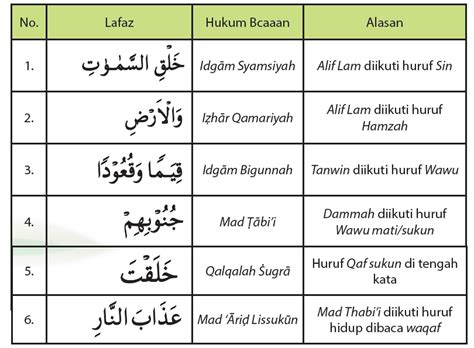 No. Lafaz Hukum Bcaaan Alasan
1. خَلْقِ السَّمٰوٰتِ Idgām Syamsiyah Alif Lam diikuti huruf Sin
2. وَالْاَرْضِ Iẓhār Qamariyah Alif Lam diikuti huruf
Hamzah
3. قِيَمًا وَقُعُوْدًا Idgām Bigunnah Tanwin diikuti huruf Wawu
4. جُنُوْبِهِمْ Mad Ṭābi'i Dammah diikuti huruf
Wawu mati/sukun
5. خَلَقْتَ Qalqalah Ṡugrā Huruf Qaf sukun di tengah
kata
6. عَذَابَ النَّارِ Mad ‘Āriḍ Lissukūn Mad Thabi’i diikuti huruf
hidup dibaca waqaf